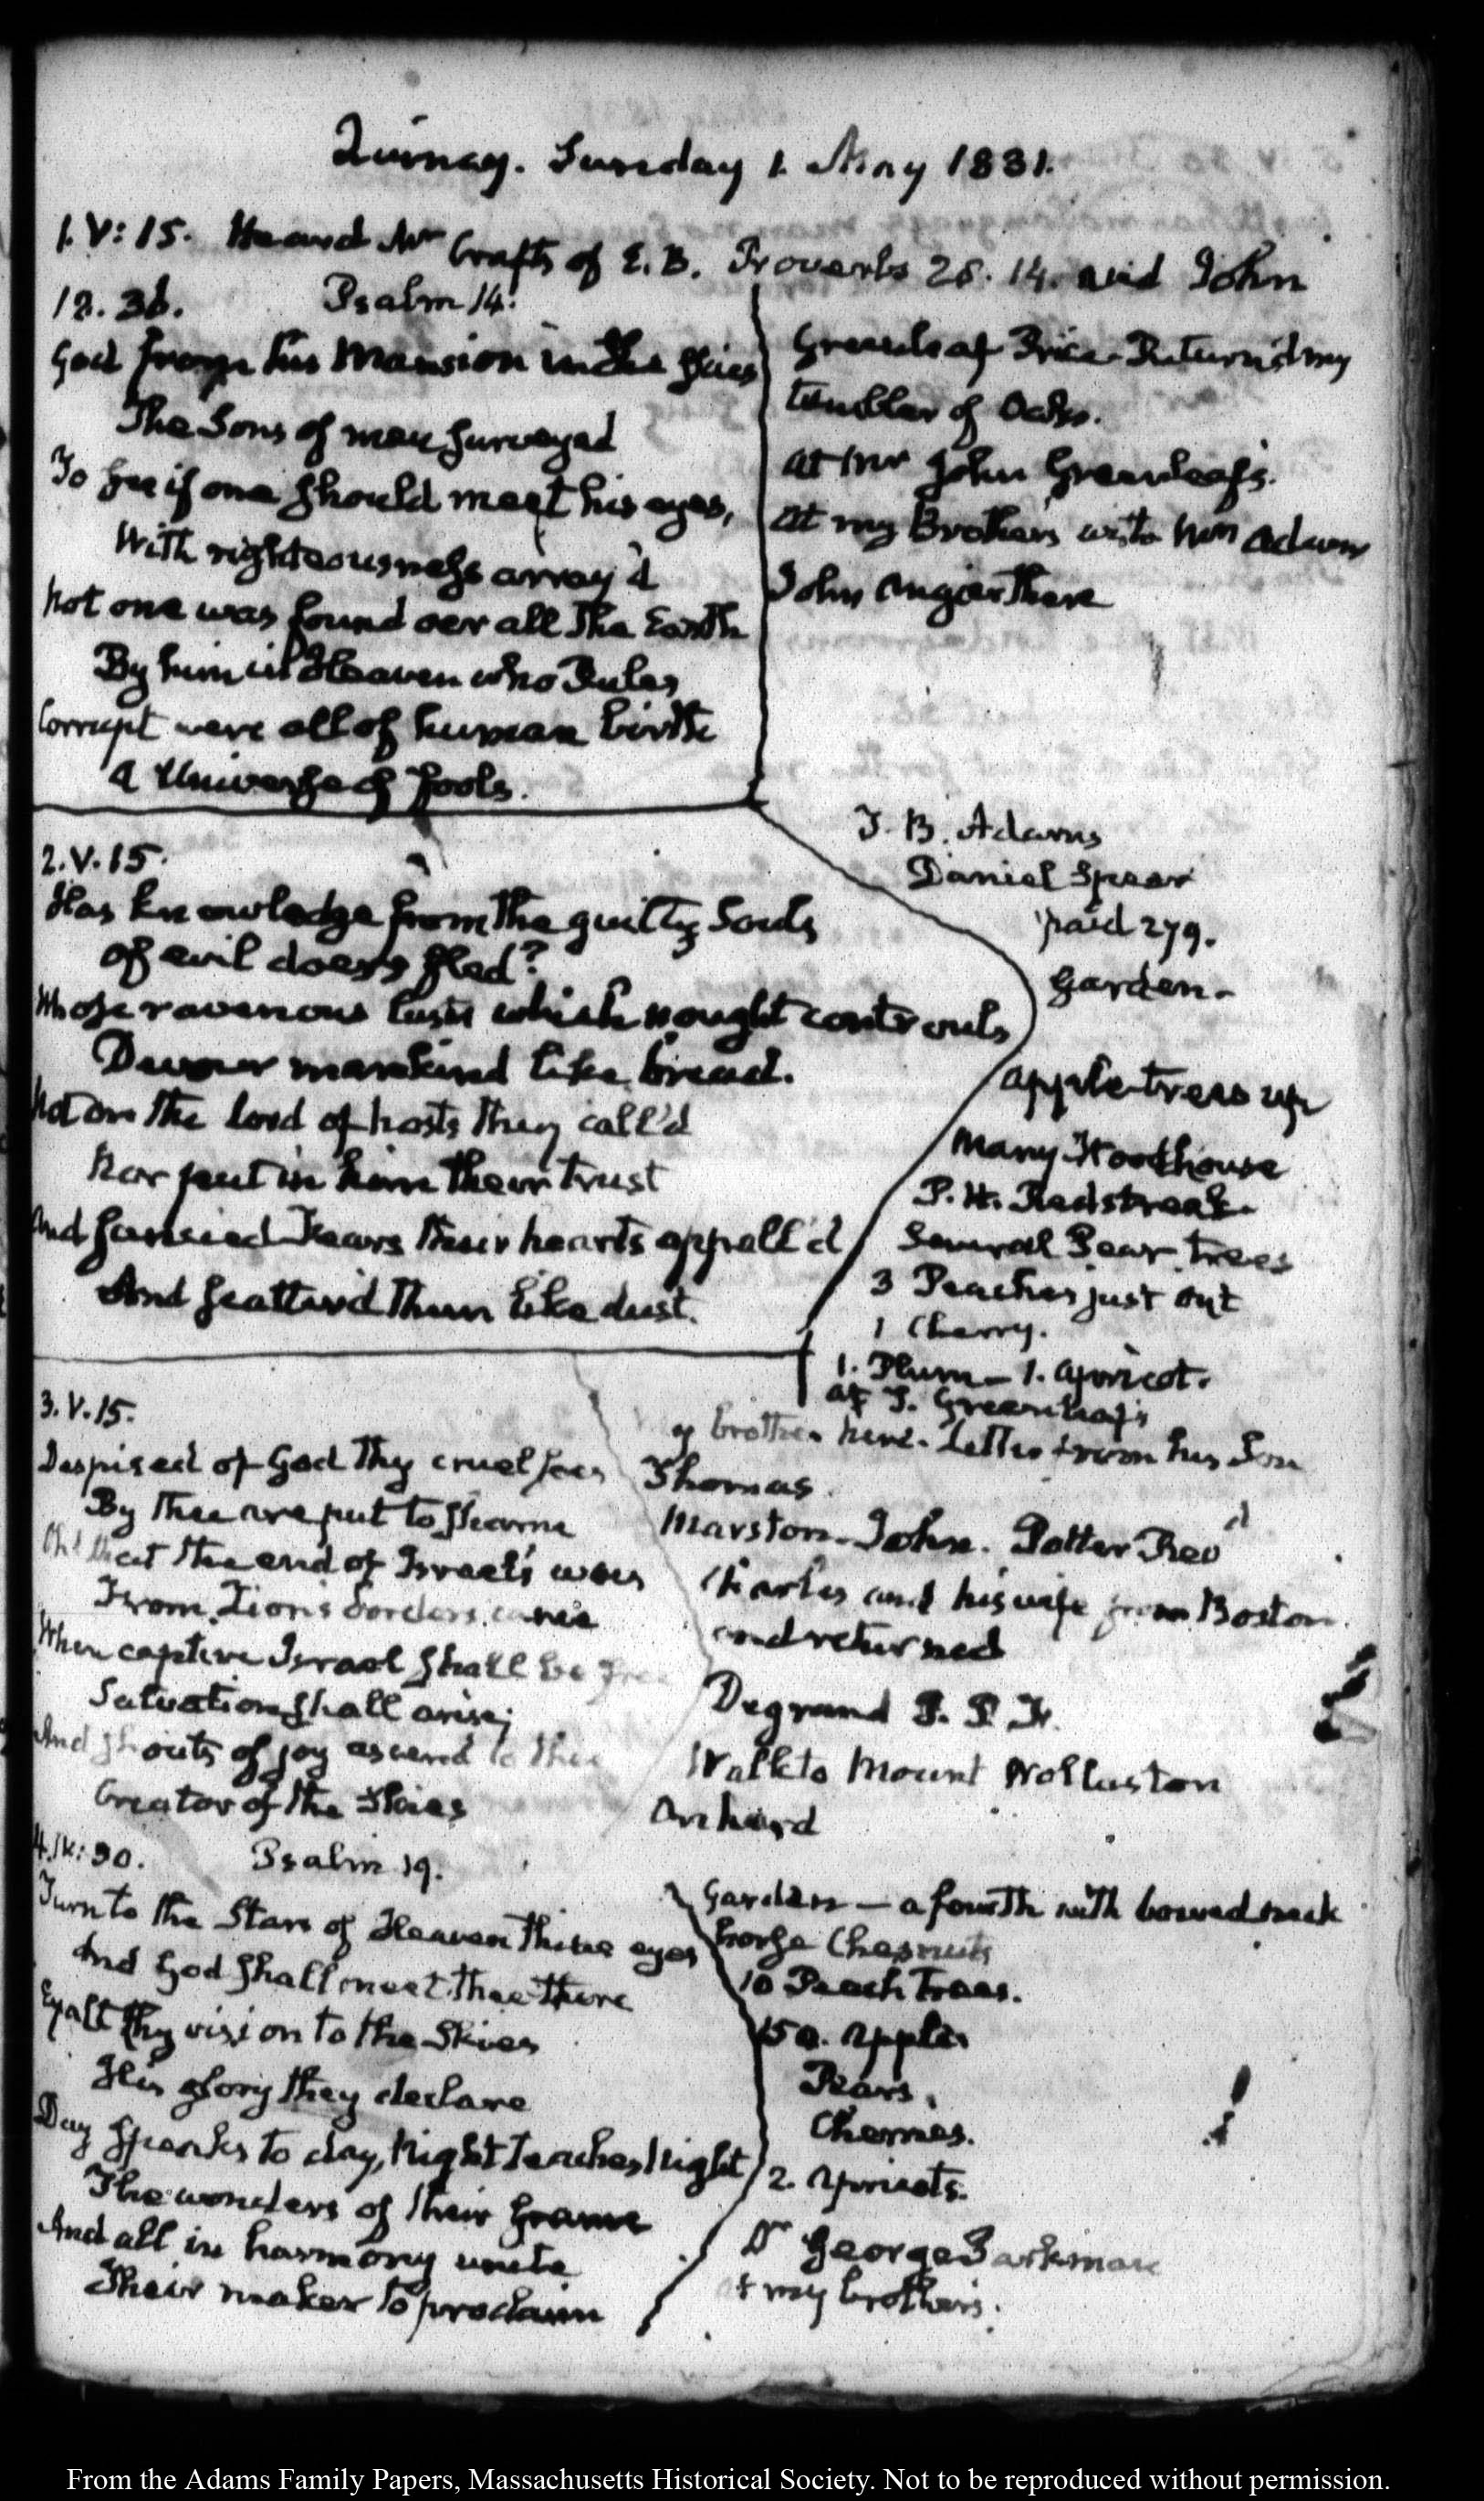 Quincy. Sunday 1. May 1831.
1. V: 15. Heard Mr Crafts of E. B. Proverbs 28. 14. and John
18. 36. Psalm 14.
God from his Mansion in the skies
The Sons of men survey'd
To see if one should meet his eyes,
With righteousness array'd
Not one was found oer all the Earth
By him in Heaven who Rules
Corrupt were all of human birth
A Universe of fools.
Greenleaf Price Return'd my
tumbler of Oaks.
at Mr John Greenleaf's.
at my Brother's with Mrs Adams
John Angier there
2. V. 15.
Has knowledge from the guilty Souls
of evil doers fled?
Whose ravenous lusts which nought controuls
Devour mankind like bread.
Not on the Lord of hosts they call'd
Nor put in him their trust
And fancied Fears their hearts appall'd
And scatter'd them like dust.
T. B. Adams
Daniel Spear
paid 279.
Garden-
Apple trees up
Many Stockhouse
P. H. Redstreak.
Several Pear trees
3 Peaches just out
1 Cherry.
1. Plum - 1. Apricot.
at J. Greenleaf's
3. V. 15.
Despised of God thy cruel foes
By thee are put to shame
Oh! that the end of Israel's woes
From Zion's borders came
When captive Israel shall be free
Salvation shall arise;
And shouts of joy ascend to thee
Creator of the Skies
brother here. Letter from his Son
Thomas.
Marston. John. Potter Revd
Charles and his wife from Boston
and returned
Degrand P. P. F.
Walk to Mount Wollaston
Orchard
4. IV: 30. Psalm 19.
Turn to the Stars of Heaven thine eyes
And God shall meet thee there
Exalt thy vision to the Skies
His glory they declare
Day speaks to day, Night teaches Night
The wonders of their frame
And all in harmony unite
Their maker to proclaim
Garden - a fourth with bowed neck
horse Chesnuts
10 Peach Trees.
150. Apples
Pears.
Cherries.
2. Apricots.
Dr George Parkman
at my brother's.
From the Adams Family Papers, Massachusetts Historical Society. Not to be reproduced without permission.